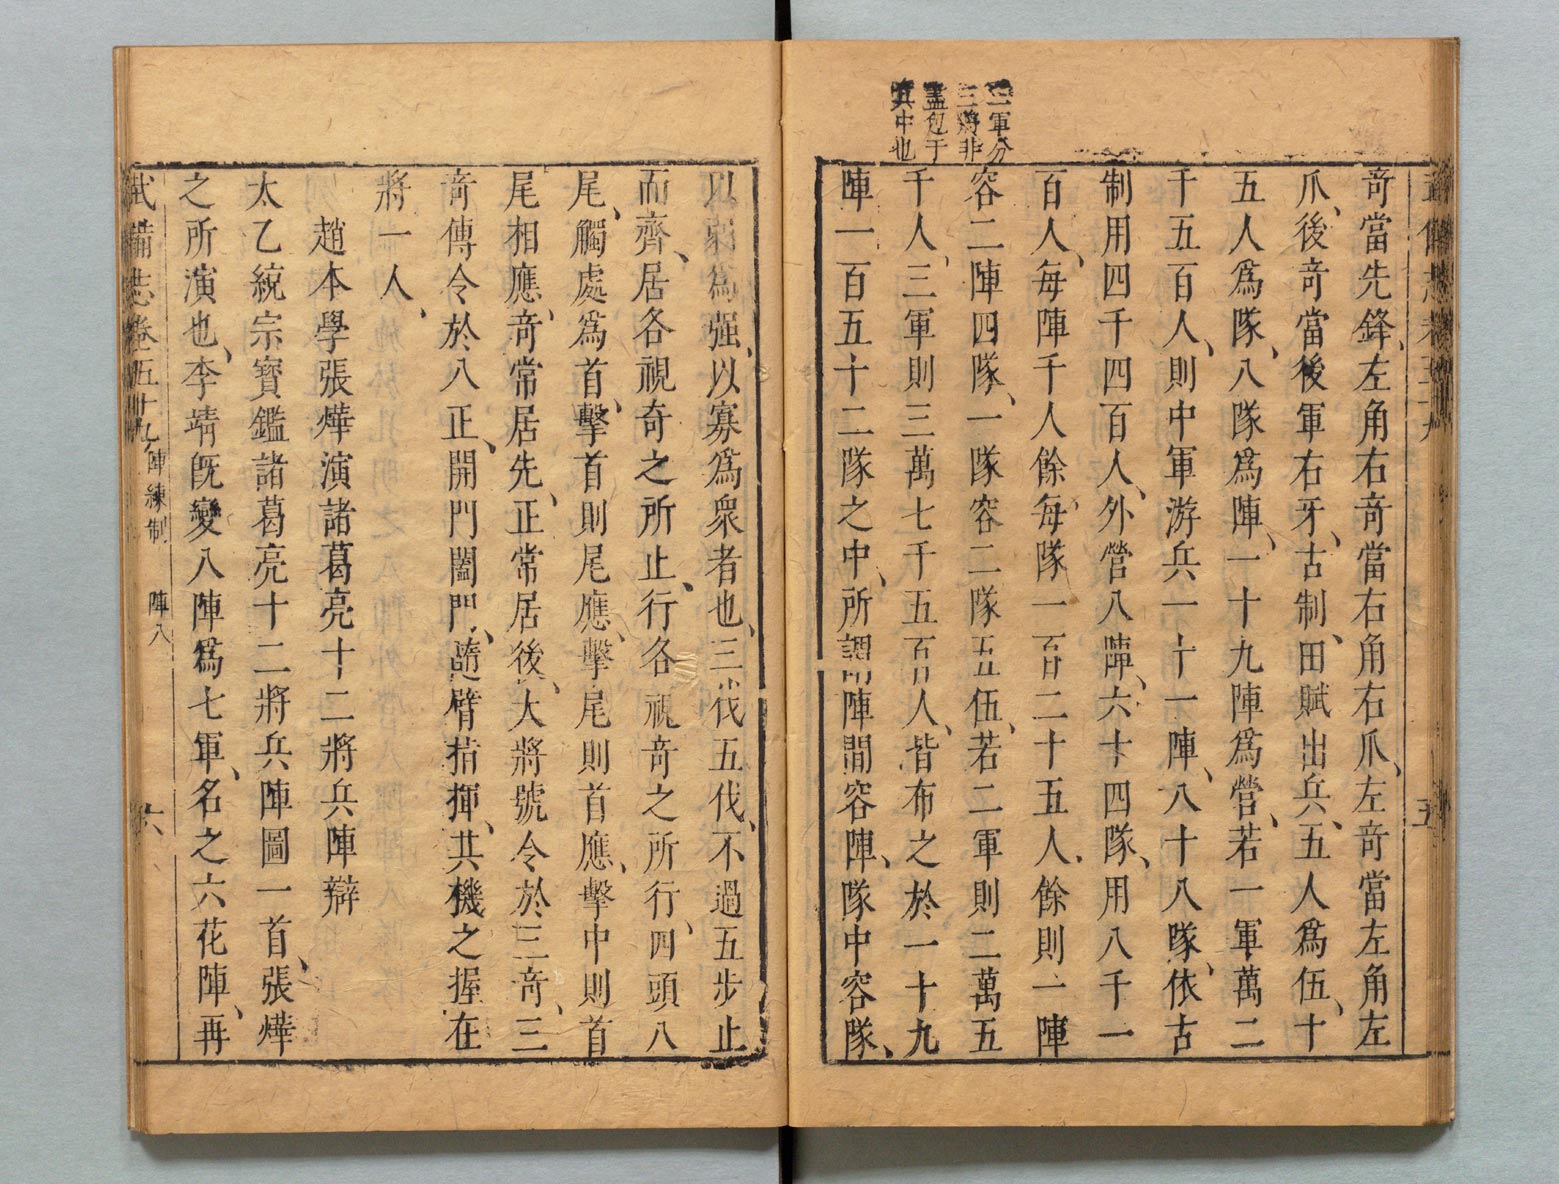 三軍分
三將非
蓋包于
其中也
奇當先鋒、左角右奇當右角右爪、左奇當左角左
爪、後奇當後軍右牙、古制、田賦出兵、五人爲伍、十
五人爲隊、八隊爲陣、一十九陣爲營、若一軍萬二
千五百人、則中軍游兵一十一陣、八十八隊、依古
制用四千四百人、外營八陣、六十四隊、用八千一
百人、每陣千人餘、每隊一百二十五人、餘則一陣
容二陣四隊、一隊容二隊五伍、若二軍則二萬五
千人、三軍則三萬七千五百人、皆布之於一十九
陣一百五十二隊之中、所謂陣間容陣、隊中容隊、
以弱爲强、以寡爲衆者也、三伐五伐、不過五步止
而齊、居各視奇之所止、行各視奇之所行、四頭八
尾、觸處爲首、擊首則尾應、擊尾則首應、擊中則首
尾相應、奇常居先、正常居後、大將號令於三奇、三
奇傳令於八正、開門闔門、隨臂指揮、其機之握在
將一人、
趙本學張燁演諸葛亮十二將兵陣辯
太乙統宗寶鑑諸葛亮十二將兵陣圖一首、張燁
之所演也、李靖旣變八陣爲七軍、名之六花陣、再
武備志卷五十九 陣練制 陣八 六